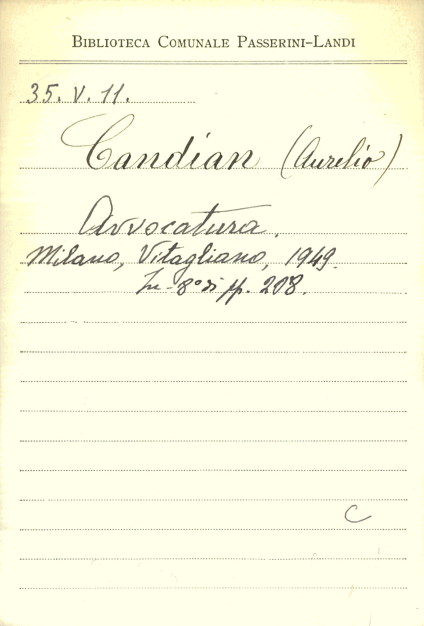 BIBLIOTECA COMUNALE PASSERINI-LANDI
35. V. 11.
Candian (Aurelio)
Avvocatura.
Milano, Vitagliano, 1949.
In-8° di pp. 208.
C